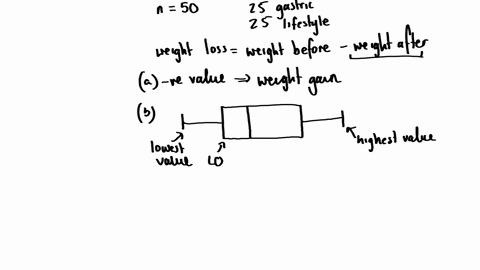 n = 50 25 gastric
25 lifestyle
weight loss = weight before - weight after
(a) -ve value ⇒ weight gain
(b)
lowest value
LQ
highest value